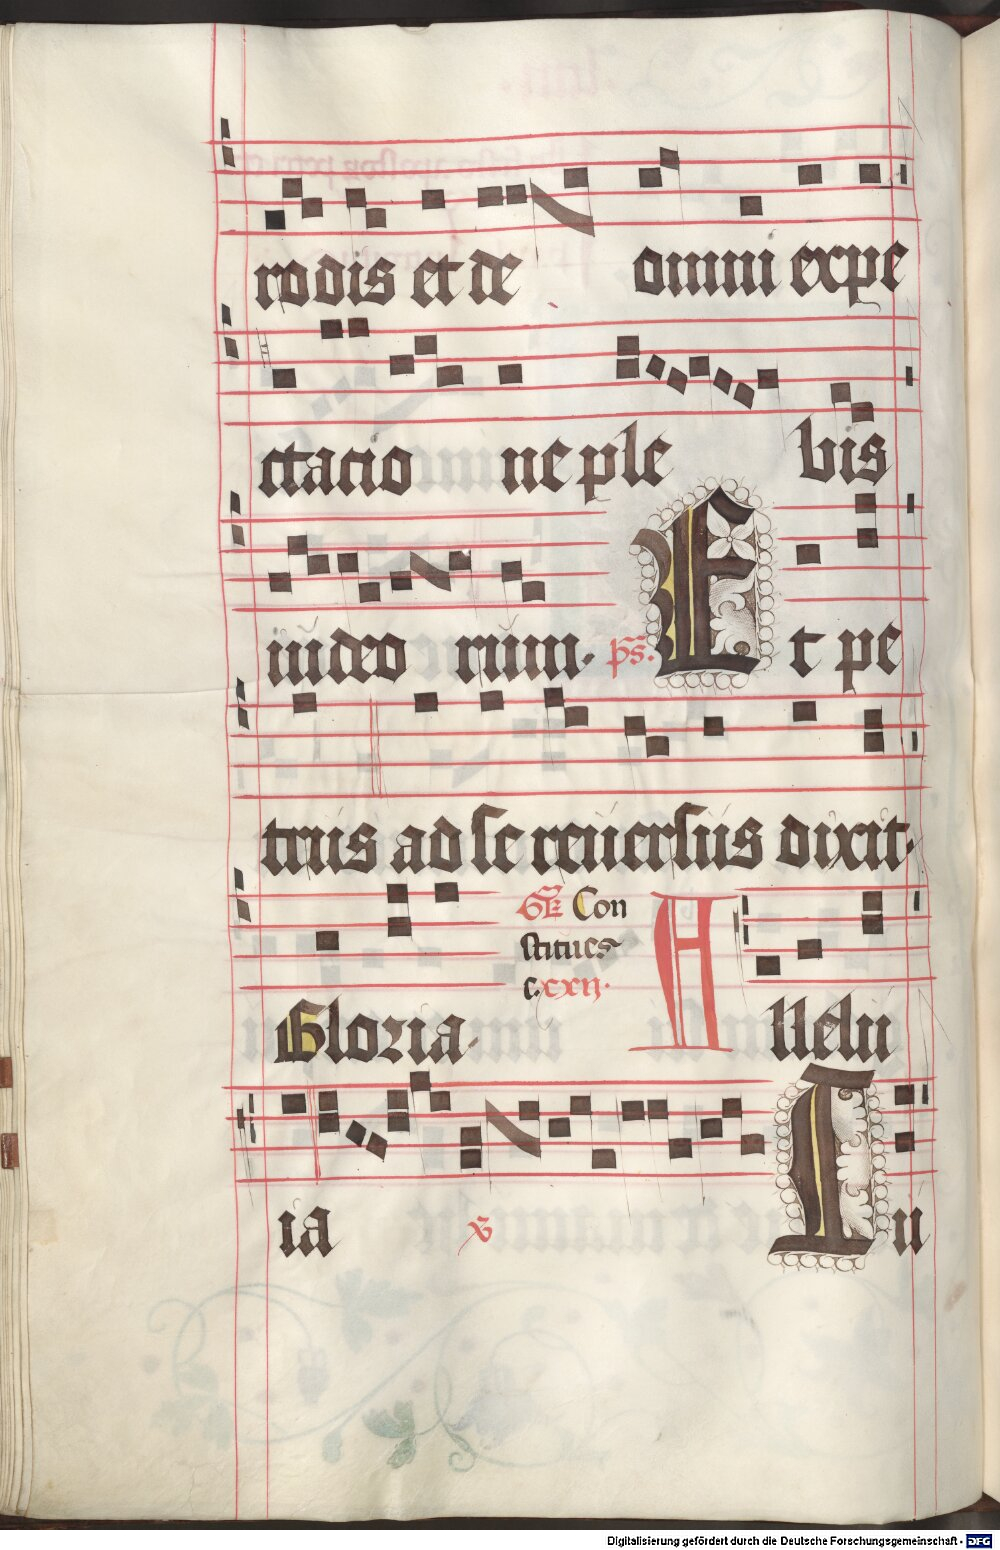 rodis et de omni expe
ctacio ne ple bis
iudeo rum. ps. Et pe
trus ad se reuersus dixit.
Gloria. Gr Con
stitues
c.xxij.
Alleluia
ia v Iu
Digitalisierung gefördert durch die Deutsche Forschungsgemeinschaft - DFG